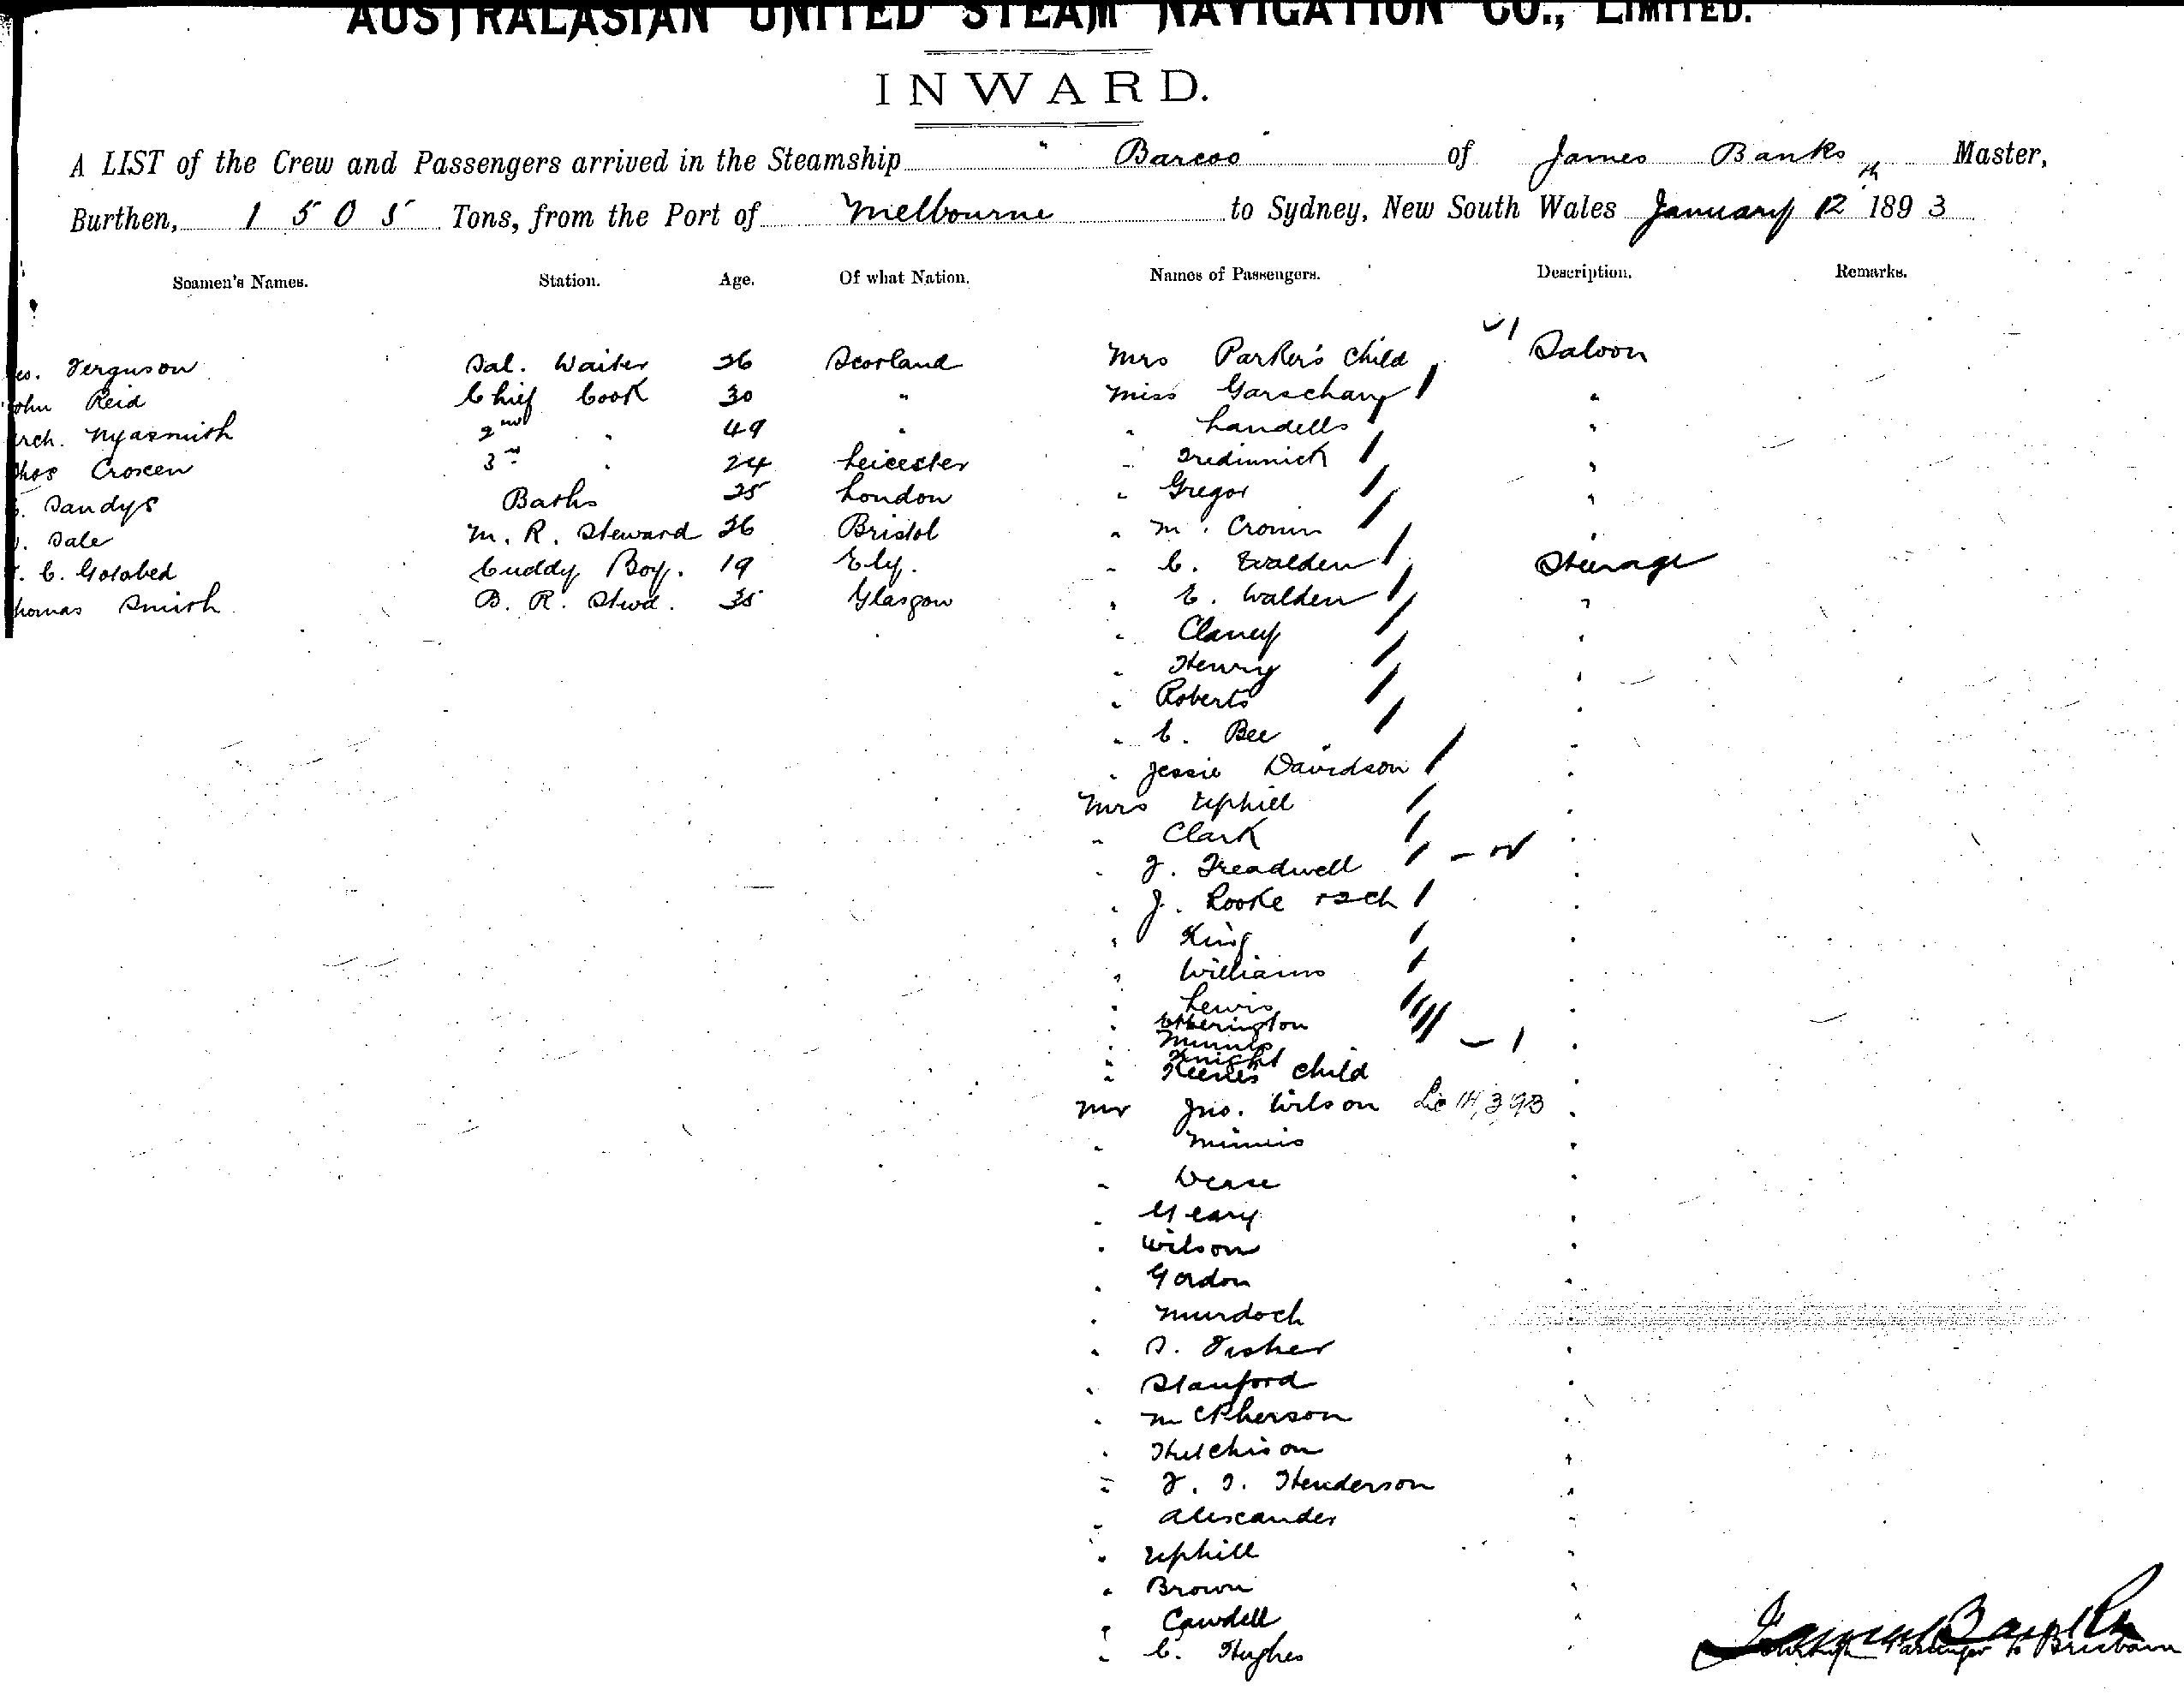 AUSTRALASIAN UNITED STEAM NAVIGATION CO., LIMITED.
INWARD.
A LIST of the Crew and Passengers arrived in the Steamship " Barcoo " of James Banks Master,
Burthen, 1505 Tons, from the Port of Melbourne to Sydney, New South Wales January 12th 1893
Seamen's Names. Station. Age. Of what Nation. Names of Passengers. Description. Remarks.
Ferguson Sal. Waiter 26 Scotland Mrs Parker's Child 1 Saloon
John Reid Chief Cook 30 " Miss "
Arch. 2nd " 49 " " Landells "
Thos 3rd " 24 Leicester " Tredinnick "
Sandys Baths 25 London " Gregor "
Sale M. R. Steward 26 Bristol " M. Cronin "
C. Golobed Cuddy Boy. 19 Ely. " C. Walden Steerage
Thomas Smith B. R. Stwd. 35 Glasgow " E. Walden "
" Clancy "
" Henry "
" Roberts "
" C. Bee "
" Jessie Davidson "
Mrs Uphill "
" Clark "
" J. Treadwell "
" J. Rooke + 2 ch "
" King "
" Williams "
" Lewis "
" Etherington
" Minnis "
" Knight
" Keene's child "
Mr Jno. Wilson "
" Minnis "
" "
" Geary "
" Wilson "
" Gordon "
" Murdoch "
" S. Fisher "
" Stanford "
" McPherson "
" Hutchison "
" Henderson "
" Alexander "
" Uphill "
" Brown "
" Cawdell "
" C. Hughes "
James Banks
Passenger to Brisbane